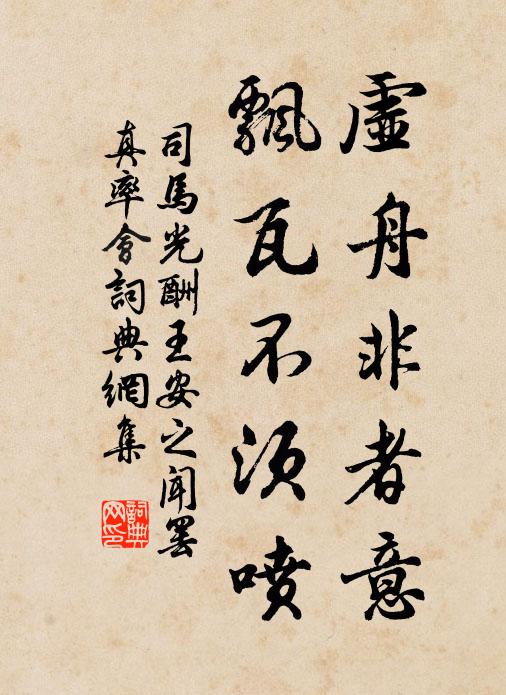 虛舟非者意
飄瓦不須噴
司馬光酬王安之聞罷
真率會詞典網集
詞典网印